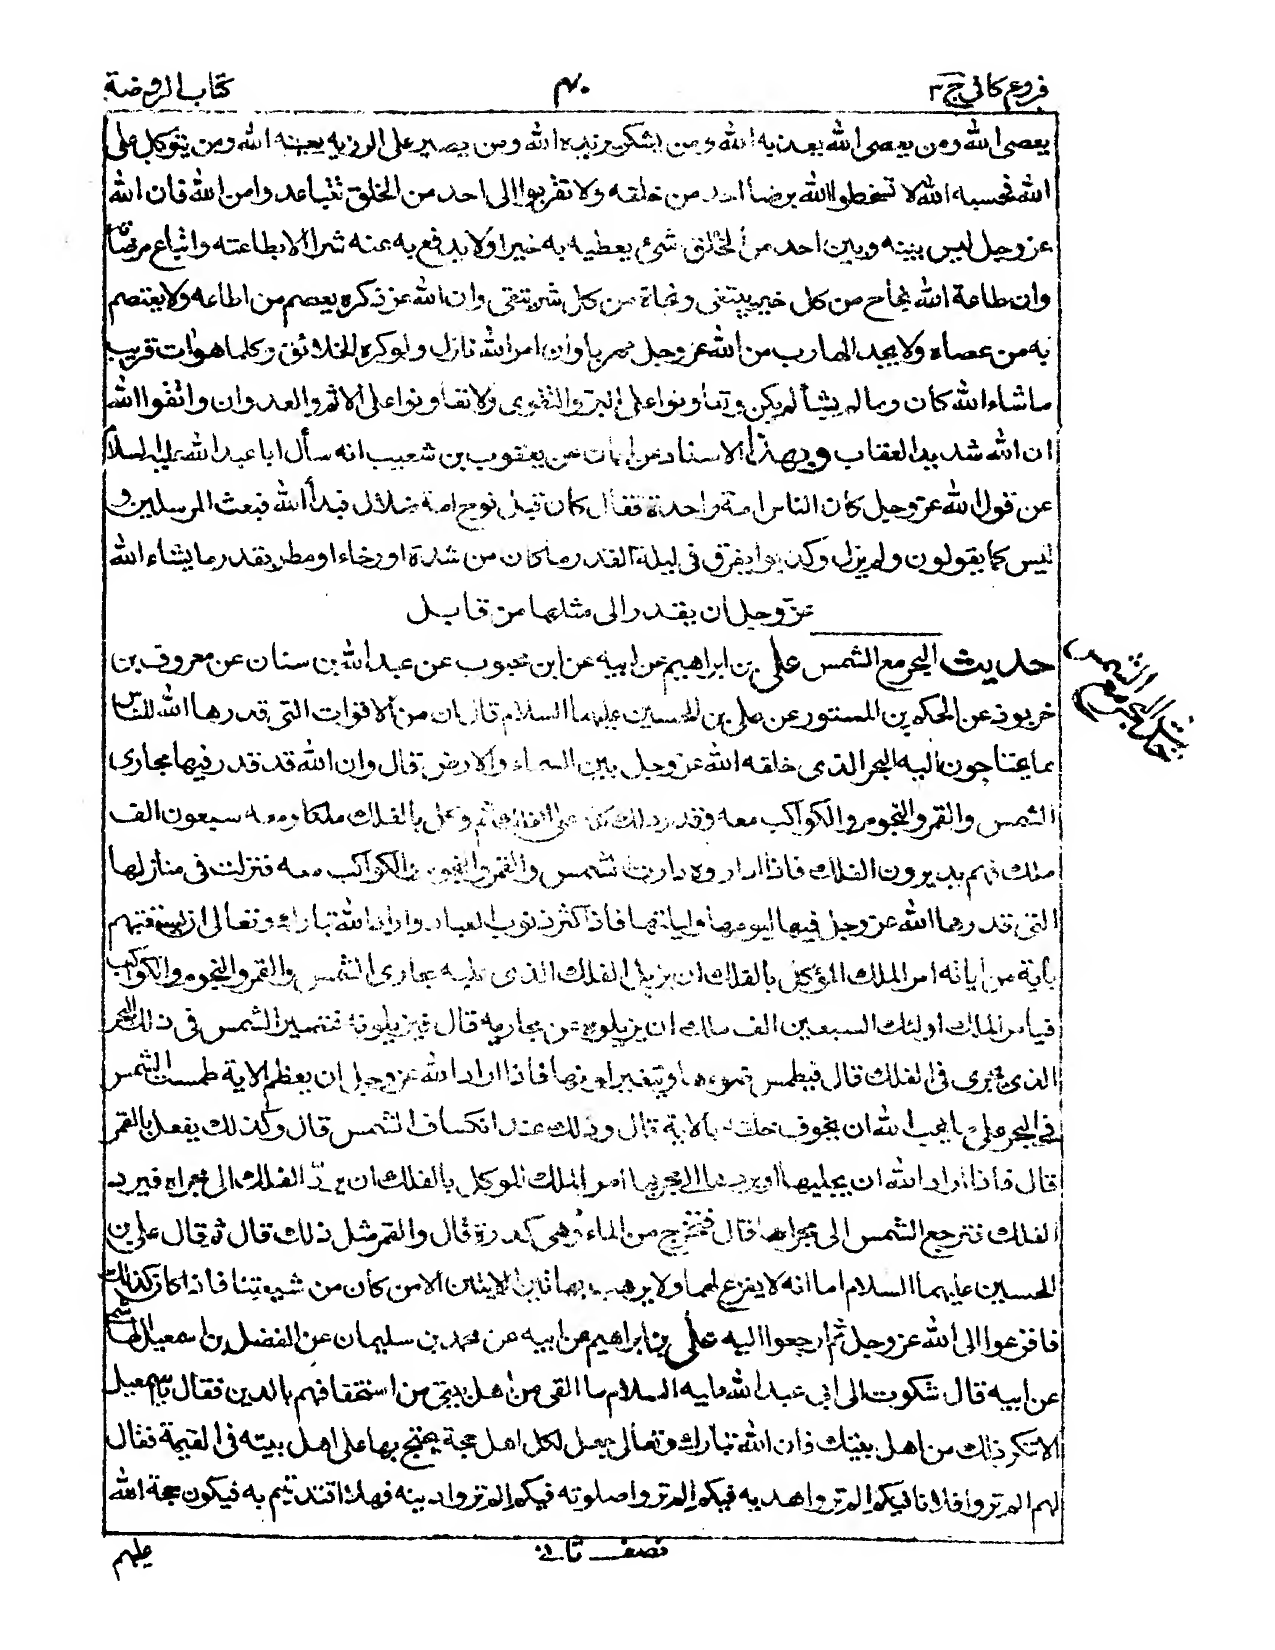 فروع كافي ج ٣
٤٠
كتاب الروضة
يعصى الله ومن يعصى الله يعذبه الله ومن يشكر يزيده الله ومن يصبر على الرزيه يعينه الله ومن يتوكل على
الله فحسبه الله لا تسخطوا الله برضا احد من خلقه ولا تقربوا الى احد من الخلق تتباعدوا من الله فان الله
عز وجل ليس بينه وبين احد من الخلق شئ يعطيه به خيرا ولا يدفع به عنه شرا الا بطاعته واتباع مرضاته
وان طاعة الله نجاح من كل خير يبتغى ونجاة من كل شر يتقى وان الله عز ذكره يعصم من اطاعه ولا يعتصم
به من عصاه ولا يجد الهارب من الله عز وجل مهربا وان امر الله نازل ولو كره الخلائق وكلما هو ات قريب
ما شاء الله كان وما لم يشأ لم يكن وتعاونوا على البر والتقوى ولا تعاونوا على الاثم والعدوان واتقوا الله
ان الله شديد العقاب وبهذا الاسناد عن ابان عن يعقوب بن شعيب انه سأل ابا عبد الله عليه السلام
عن قول الله عز وجل كان الناس امة واحدة فقال كان قبل نوح امة ضلال فبدأ الله فبعث المرسلين و
ليس كما يقولون ولم يزل وكذبوا يفرق فى ليلة القدر ما كان من شدة او رخاء او مطر بقدر ما يشاء الله
عز وجل ان يقدر الى مثلها من قابل
حديث البحر مع الشمس على بن ابراهيم عن ابيه عن ابن محبوب عن عبد الله بن سنان عن معروف بن
خربوذ عن الحكم بن المستور عن على بن الحسين عليهما السلام قال ان من الاقوات التى قدرها الله للناس
مما يحتاجون اليه البحر الذى خلقه الله عز وجل بين السماء والارض قال وان الله قد قدر فيها مجارى
الشمس والقمر والنجوم والكواكب معه وقدر ذلك كله على الفلك ثم وكل بالفلك ملكا ومعه سبعون الف
ملك فهم يديرون الفلك فاذا اداروه دارت الشمس والقمر والنجوم والكواكب معه فنزلت فى منازلها
التى قدرها الله عز وجل فيها ليومها وليلتها فاذا كثر ذنوب العباد واراد الله تبارك وتعالى ان يستعتبهم
باية من اياته امر الملك الموكل بالفلك ان يزيل الفلك الذى عليه مجارى الشمس والقمر والنجوم والكواكب
فيامر الملك اولئك السبعين الف ملك ان يزيلوه عن مجاريه قال فيزيلونه فتصير الشمس فى ذلك البحر
الذى يجرى فى الفلك قال فيطمس ضوءها ويتغير لونها فاذا اراد الله عز وجل ان يعظم الاية طمست الشمس
فى البحر على ما يحب الله ان يخوف خلقه بالاية قال وذلك عند انكساف الشمس قال وكذلك يفعل بالقمر
قال فاذا اراد الله ان يجليها او يردها الى مجريها امر الملك الموكل بالفلك ان يرد الفلك الى مجراه فيرد
الفلك فترجع الشمس الى مجراها قال فتخرج من الماء وهى كدرة قال والقمر مثل ذلك قال ثم قال على بن
الحسين عليهما السلام اما انه لا يفزع لهما ولا يرهب بهاتين الايتين الا من كان من شيعتنا فاذا كان كذلك
فافزعوا الى الله عز وجل ثم ارجعوا اليه على بن ابراهيم عن ابيه عن محمد بن سليمان عن الفضل بن اسمعيل الهاشمى
عن ابيه قال شكوت الى ابى عبد الله عليه السلام ما القى من اهل بيتى من استخفافهم بالدين فقال يا اسمعيل
لا تنكر ذلك من اهل بيتك فان الله تبارك وتعالى جعل لكل اهل حجة يحتج بها على اهل بيته فى القيمة فقال
لهم الم تروا فلانا فيكم الم تروا هديه فيكم الم تروا صلوته فيكم الم تروا دينه فهلا اقتديتم به فيكون حجة الله
حديث البحر مع الشمس
عليهم
نصف ثانى